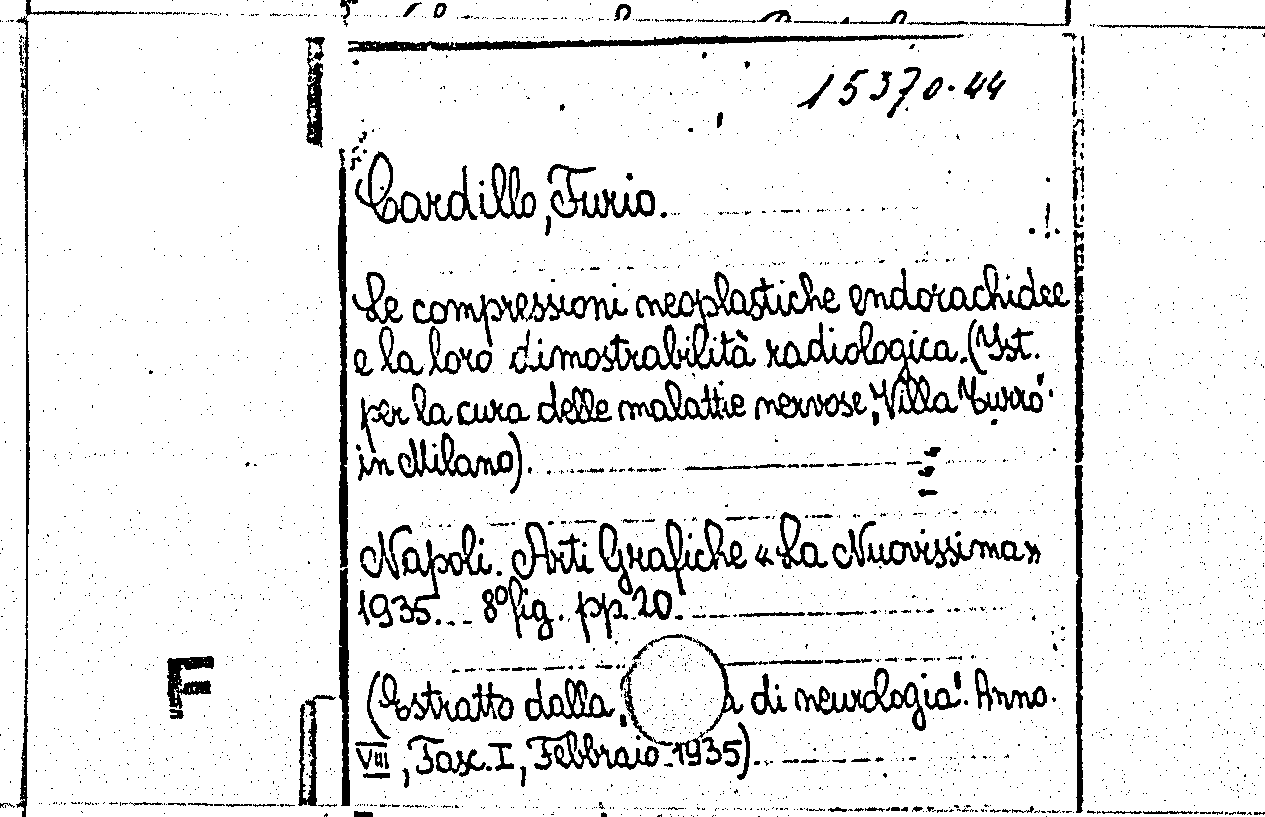 15370.44
Cardillo, Furio.
Le compressioni neoplastiche endorachidee
e la loro dimostrabilità radiologica. (Ist.
per la cura delle malattie nervose, "Villa Turro"
in Milano).
Napoli. Arti Grafiche «La Nuovissima»
1935... 8° fig. pp. 20.
(Estratto dalla di neurologia". Anno.
VIII, Fasc. I, Febbraio 1935).
F